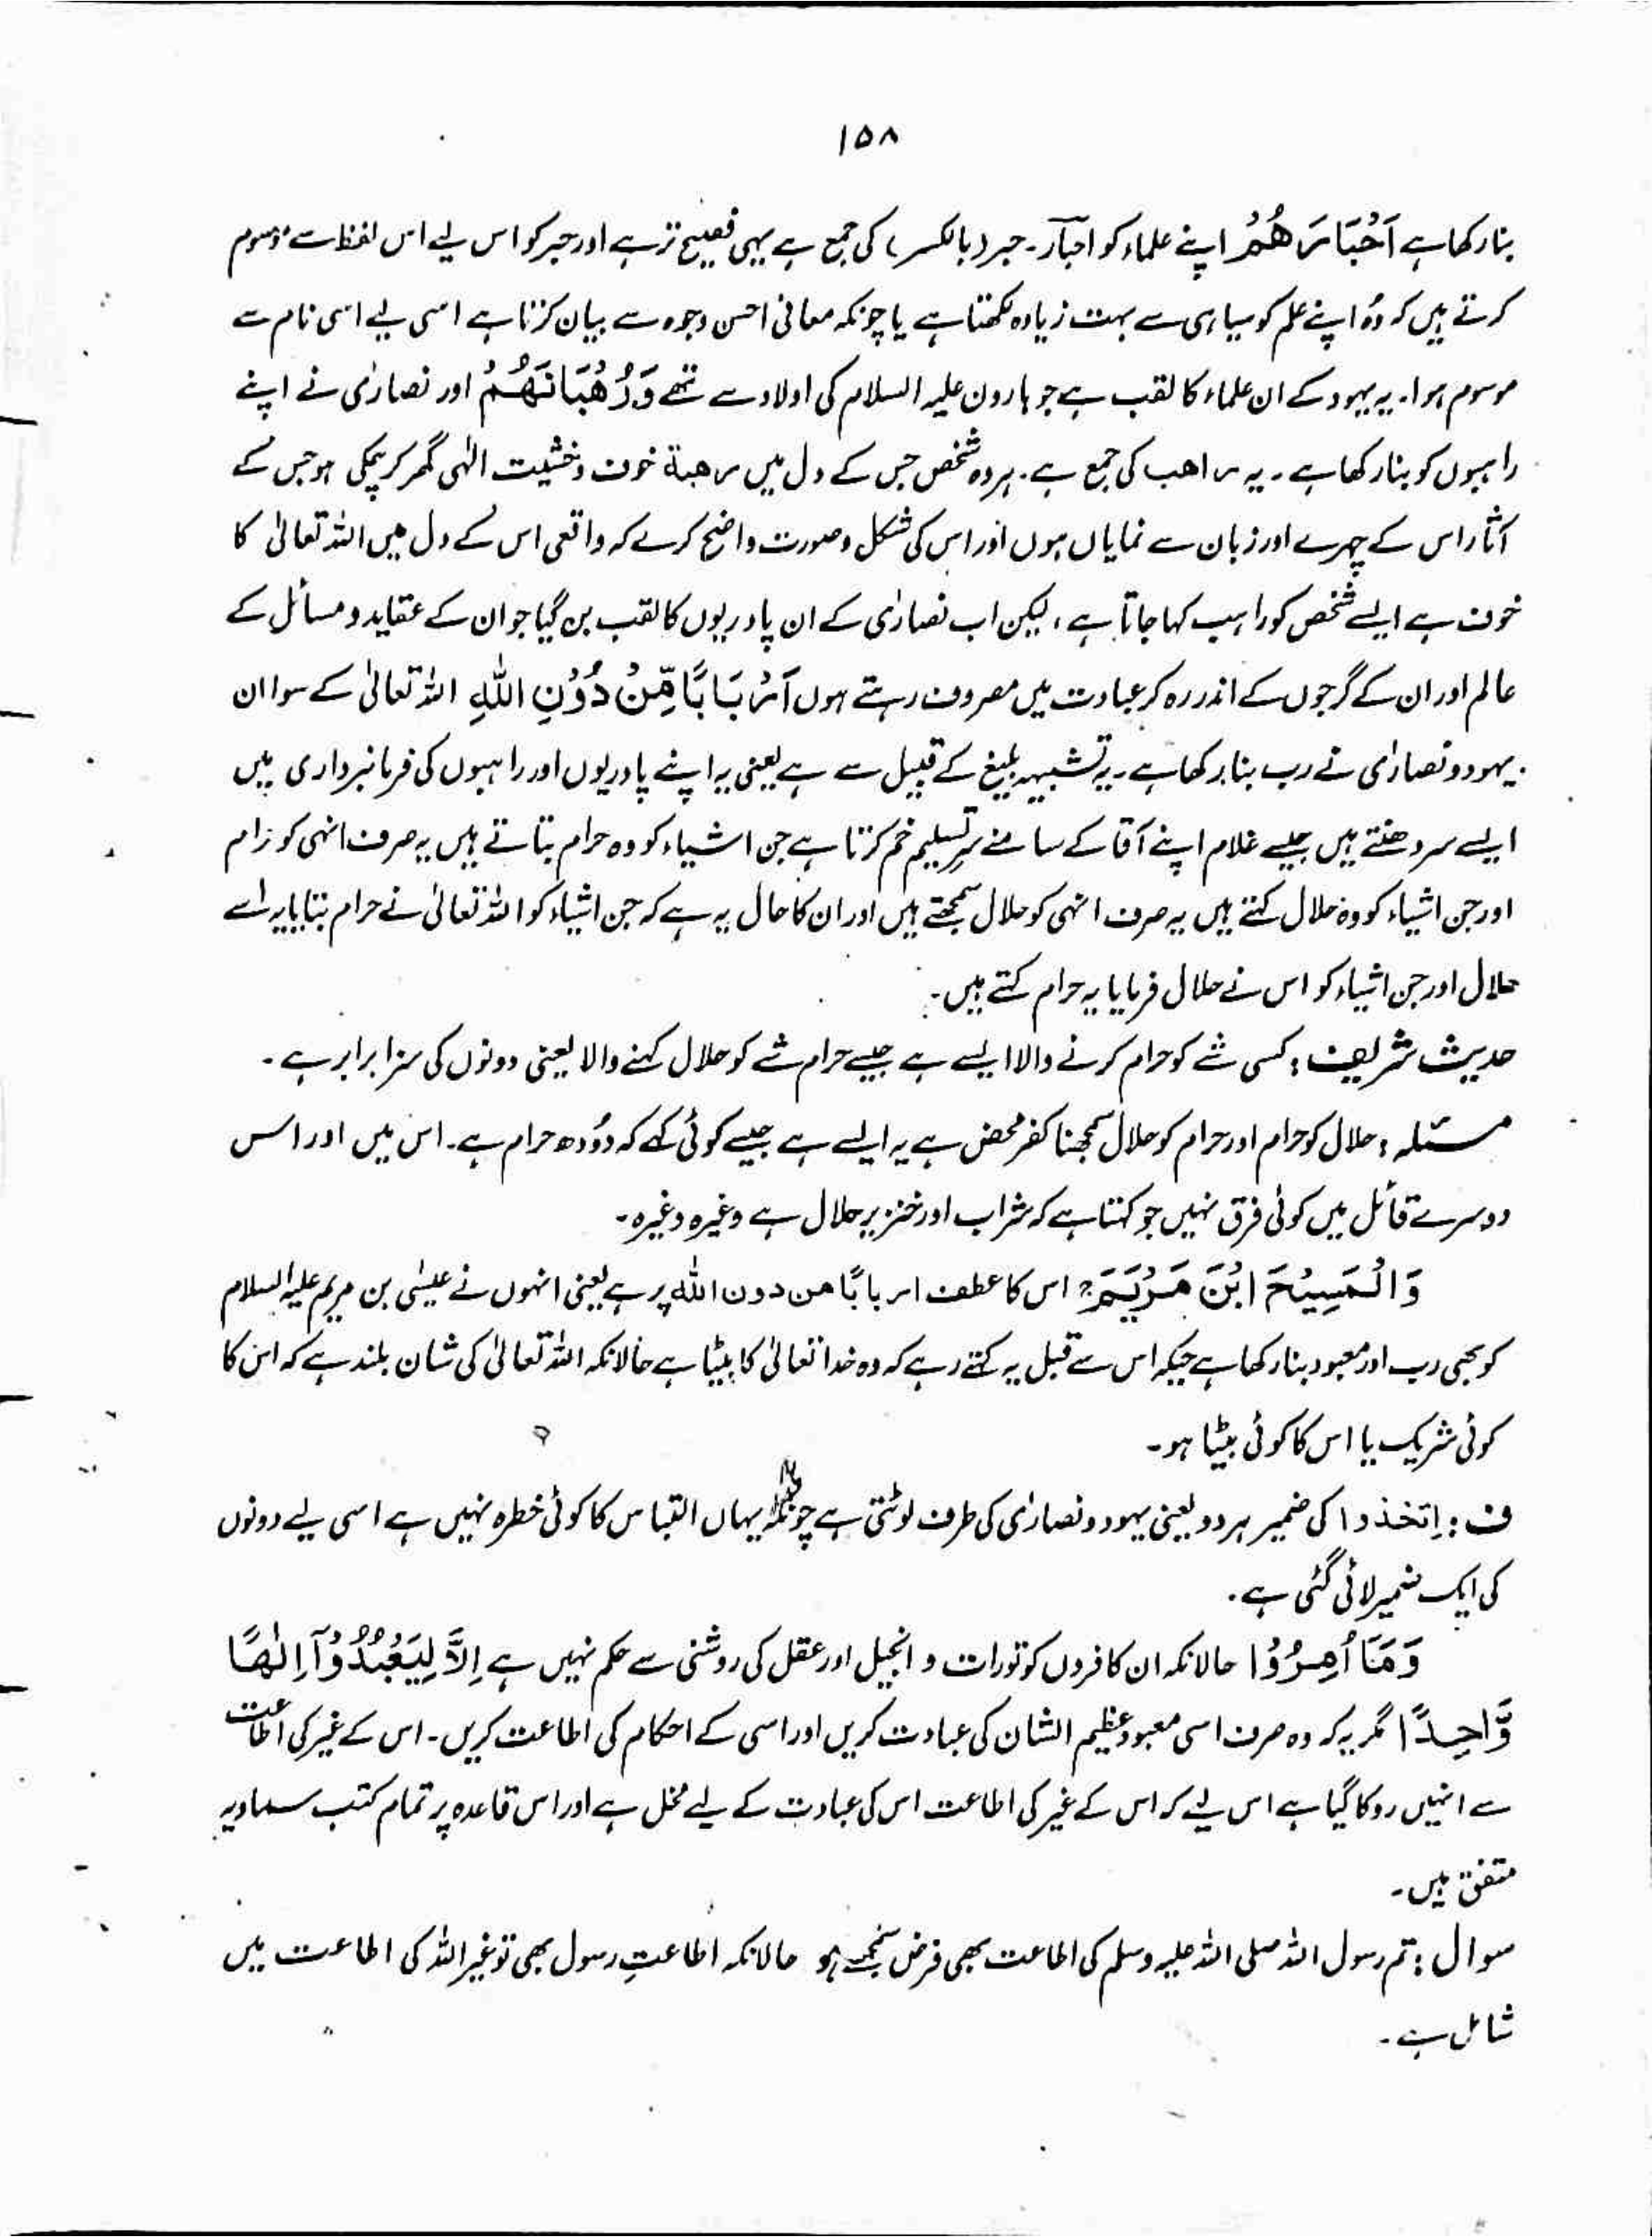 ۱۵۸
بنا رکھا ہے اَحْبَارَهُمْ اپنے علماء کو احبآر۔ حبر (بالکسر) کی جمع ہے یہی فصیح تر ہے اور حبر کو اس لیے اس لفظ سے موسوم
کرتے ہیں کہ وُہ اپنے علم کو سیاہی سے بہت زیادہ لکھتا ہے یا چونکہ معانی احسن وجوہ سے بیان کرتا ہے اسی لیے اسی نام سے
موسوم ہوا۔ یہ یہود کے ان علماء کا لقب ہے جو ہارون علیہ السلام کی اولاد سے تھے وَرُهْبَانَهُمْ اور نصارٰی نے اپنے
راہبوں کو بنا رکھا ہے۔ یہ راھب کی جمع ہے۔ ہر وہ شخص جس کے دل میں رھبة خوف و خشیت الٰہی گھر کر چکی ہو جس کے
آثار اس کے چہرے اور زبان سے نمایاں ہوں اور اس کی شکل و صورت واضح کرے کہ واقعی اس کے دل میں اللہ تعالیٰ کا
خوف ہے ایسے شخص کو راہب کہا جاتا ہے، لیکن اب نصارٰی کے ان پادریوں کا لقب بن گیا جو ان کے عقاید و مسائل کے
عالم اور ان کے گرجوں کے اندر رہ کر عبادت میں مصروف رہتے ہوں اَرْبَابًا مِّنْ دُوْنِ اللّٰهِ اللہ تعالیٰ کے سوا ان
یہود و نصارٰی نے رب بنا رکھا ہے۔ یہ تشبیہہ بلیغ کے قبیل سے ہے یعنی یہ اپنے پادریوں اور راہبوں کی فرمانبرداری میں
ایسے سر دھنتے ہیں جیسے غلام اپنے آقا کے سامنے سرِ تسلیم خم کرتا ہے جن اشیاء کو وہ حرام بتاتے ہیں یہ صرف انہی کو حرام
اور جن اشیاء کو وہ حلال کہتے ہیں یہ صرف انہی کو حلال سمجھتے ہیں اور ان کا حال یہ ہے کہ جن اشیاء کو اللہ تعالیٰ نے حرام بتایا یہ اسے
حلال اور جن اشیاء کو اس نے حلال فرمایا یہ حرام کہتے ہیں۔
حدیث شریف: کسی شے کو حرام کرنے والا ایسے ہے جیسے حرام شے کو حلال کہنے والا یعنی دونوں کی سزا برابر ہے۔
مسئلہ: حلال کو حرام اور حرام کو حلال سمجھنا کفر محض ہے یہ ایسے ہے جیسے کوئی کہے کہ دُودھ حرام ہے۔ اس میں اور اس
دوسرے قائل میں کوئی فرق نہیں جو کہتا ہے کہ شراب اور خنزیر حلال ہے وغیرہ وغیرہ۔
وَالْمَسِیْحَ ابْنَ مَرْیَمَ اس کا عطف اربابًا من دون اللہ پر ہے یعنی انہوں نے عیسٰی بن مریم علیہ السلام
کو بھی رب اور معبود بنا رکھا ہے جبکہ اس سے قبل یہ کہتے رہے کہ وہ خدا تعالیٰ کا بیٹا ہے حالانکہ اللہ تعالیٰ کی شان بلند ہے کہ اس کا
کوئی شریک یا اس کا کوئی بیٹا ہو۔
ف: اِتخذوا کی ضمیر ہر دو یعنی یہود و نصارٰی کی طرف لوٹتی ہے چونکہ یہاں التباس کا کوئی خطرہ نہیں ہے اسی لیے دونوں
کی ایک ضمیر لائی گئی ہے۔
وَمَآ اُمِرُوْا حالانکہ ان کافروں کو تورات و انجیل اور عقل کی روشنی سے حکم نہیں ہے اِلَّا لِیَعْبُدُوْآ اِلٰهًا
وَّاحِدًا مگر یہ کہ وہ صرف اسی معبود عظیم الشان کی عبادت کریں اور اسی کے احکام کی اطاعت کریں۔ اس کے غیر کی اطاعت
سے انہیں روکا گیا ہے اس لیے کہ اس کے غیر کی اطاعت اس کی عبادت کے لیے مخل ہے اور اس قاعدہ پر تمام کتب سماویہ
متفق ہیں۔
سوال: تم رسول اللہ صلی اللہ علیہ وسلم کی اطاعت بھی فرض سمجھتے ہو حالانکہ اطاعتِ رسول بھی تو غیر اللہ کی اطاعت میں
شامل ہے۔